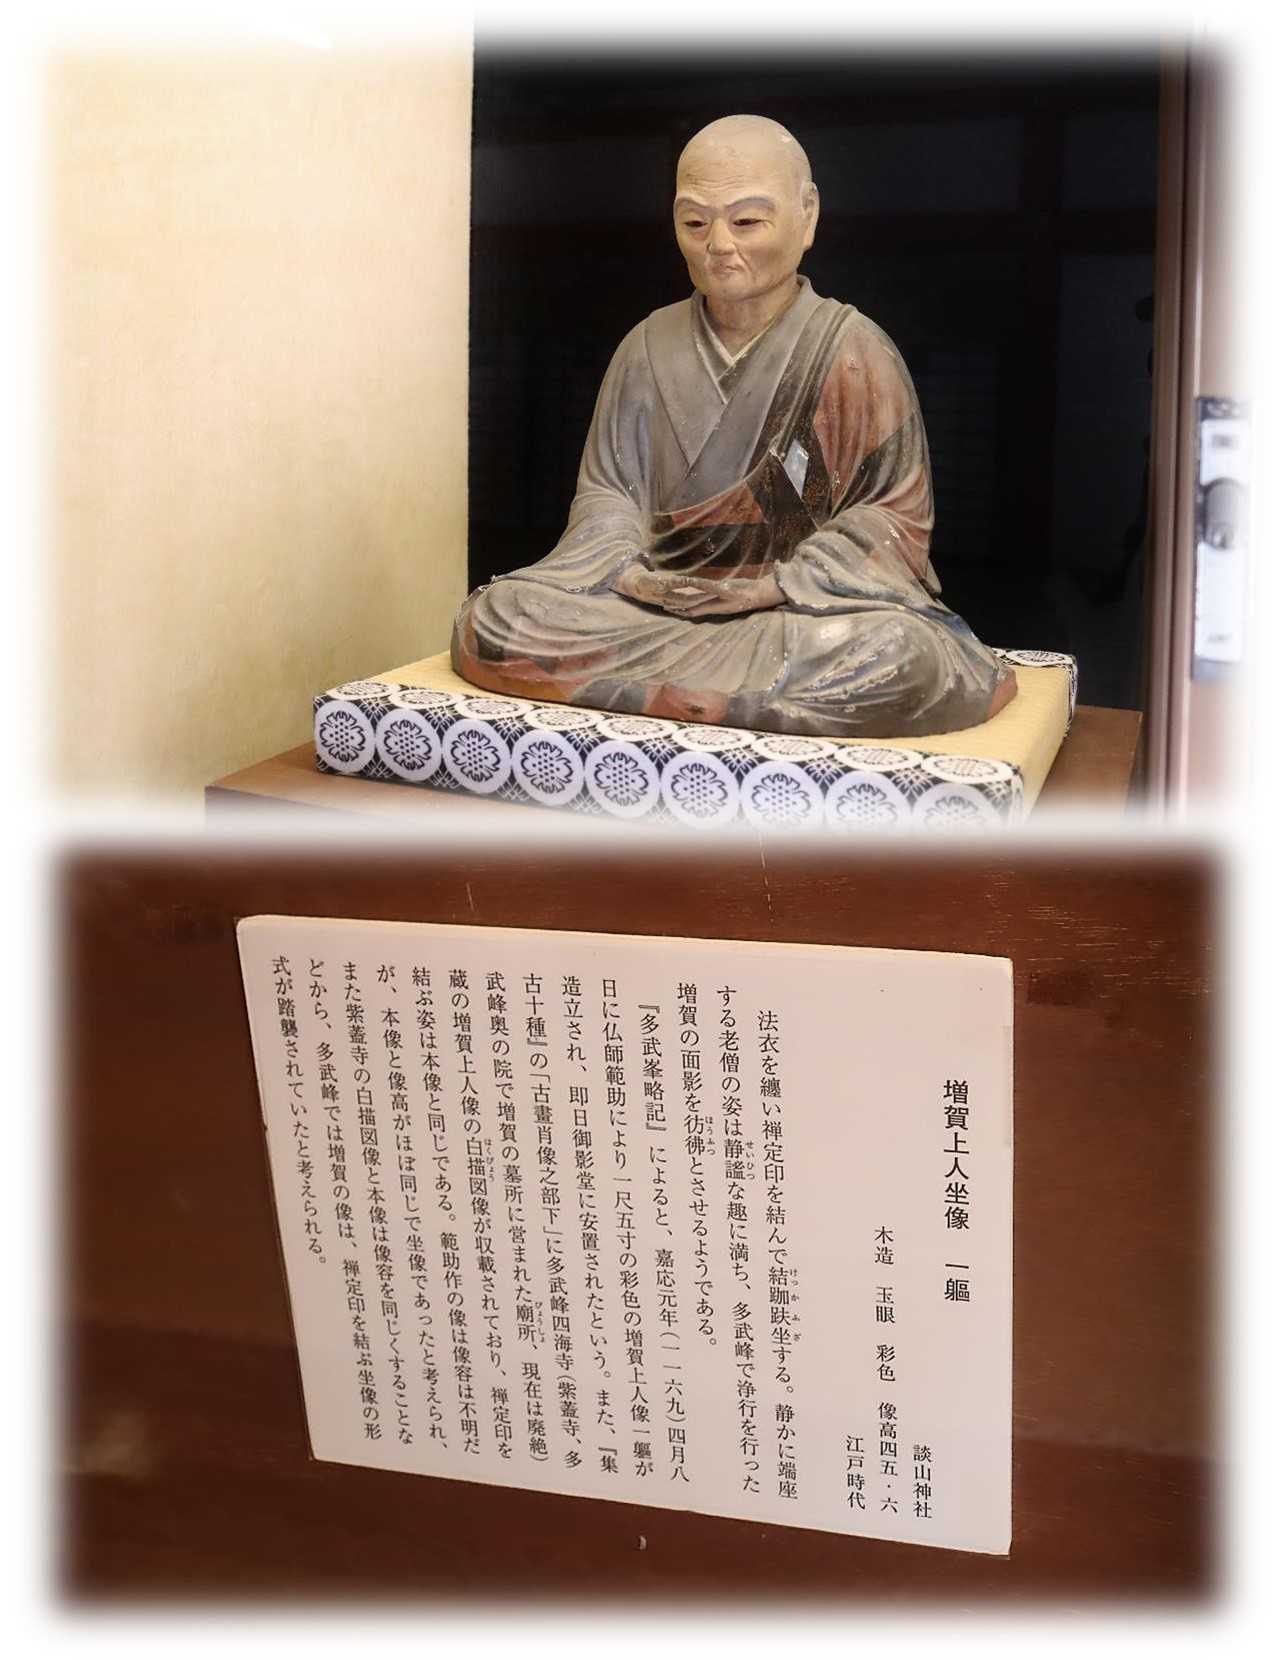 増賀上人坐像　一軀
談山神社
木造　玉眼　彩色　像高四五・六
江戸時代
法衣を纏い禅定印を結んで結跏趺坐する。静かに端座
する老僧の姿は静謐な趣に満ち、多武峰で浄行を行った
増賀の面影を彷彿とさせるようである。
『多武峯略記』によると、嘉応元年（一一六九）四月八
日に仏師範助により一尺五寸の彩色の増賀上人像一軀が
造立され、即日御影堂に安置されたという。また、『集
古十種』の「古畫肖像之部下」に多武峰四海寺（紫蓋寺、多
武峰奥の院で増賀の墓所に営まれた廟所、現在は廃絶）
蔵の増賀上人像の白描図像が収載されており、禅定印を
結ぶ姿は本像と同じである。範助作の像は像容は不明だ
が、本像と像高がほぼ同じで坐像であったと考えられ、
また紫蓋寺の白描図像と本像は像容を同じくすることな
どから、多武峰では増賀の像は、禅定印を結ぶ坐像の形
式が踏襲されていたと考えられる。